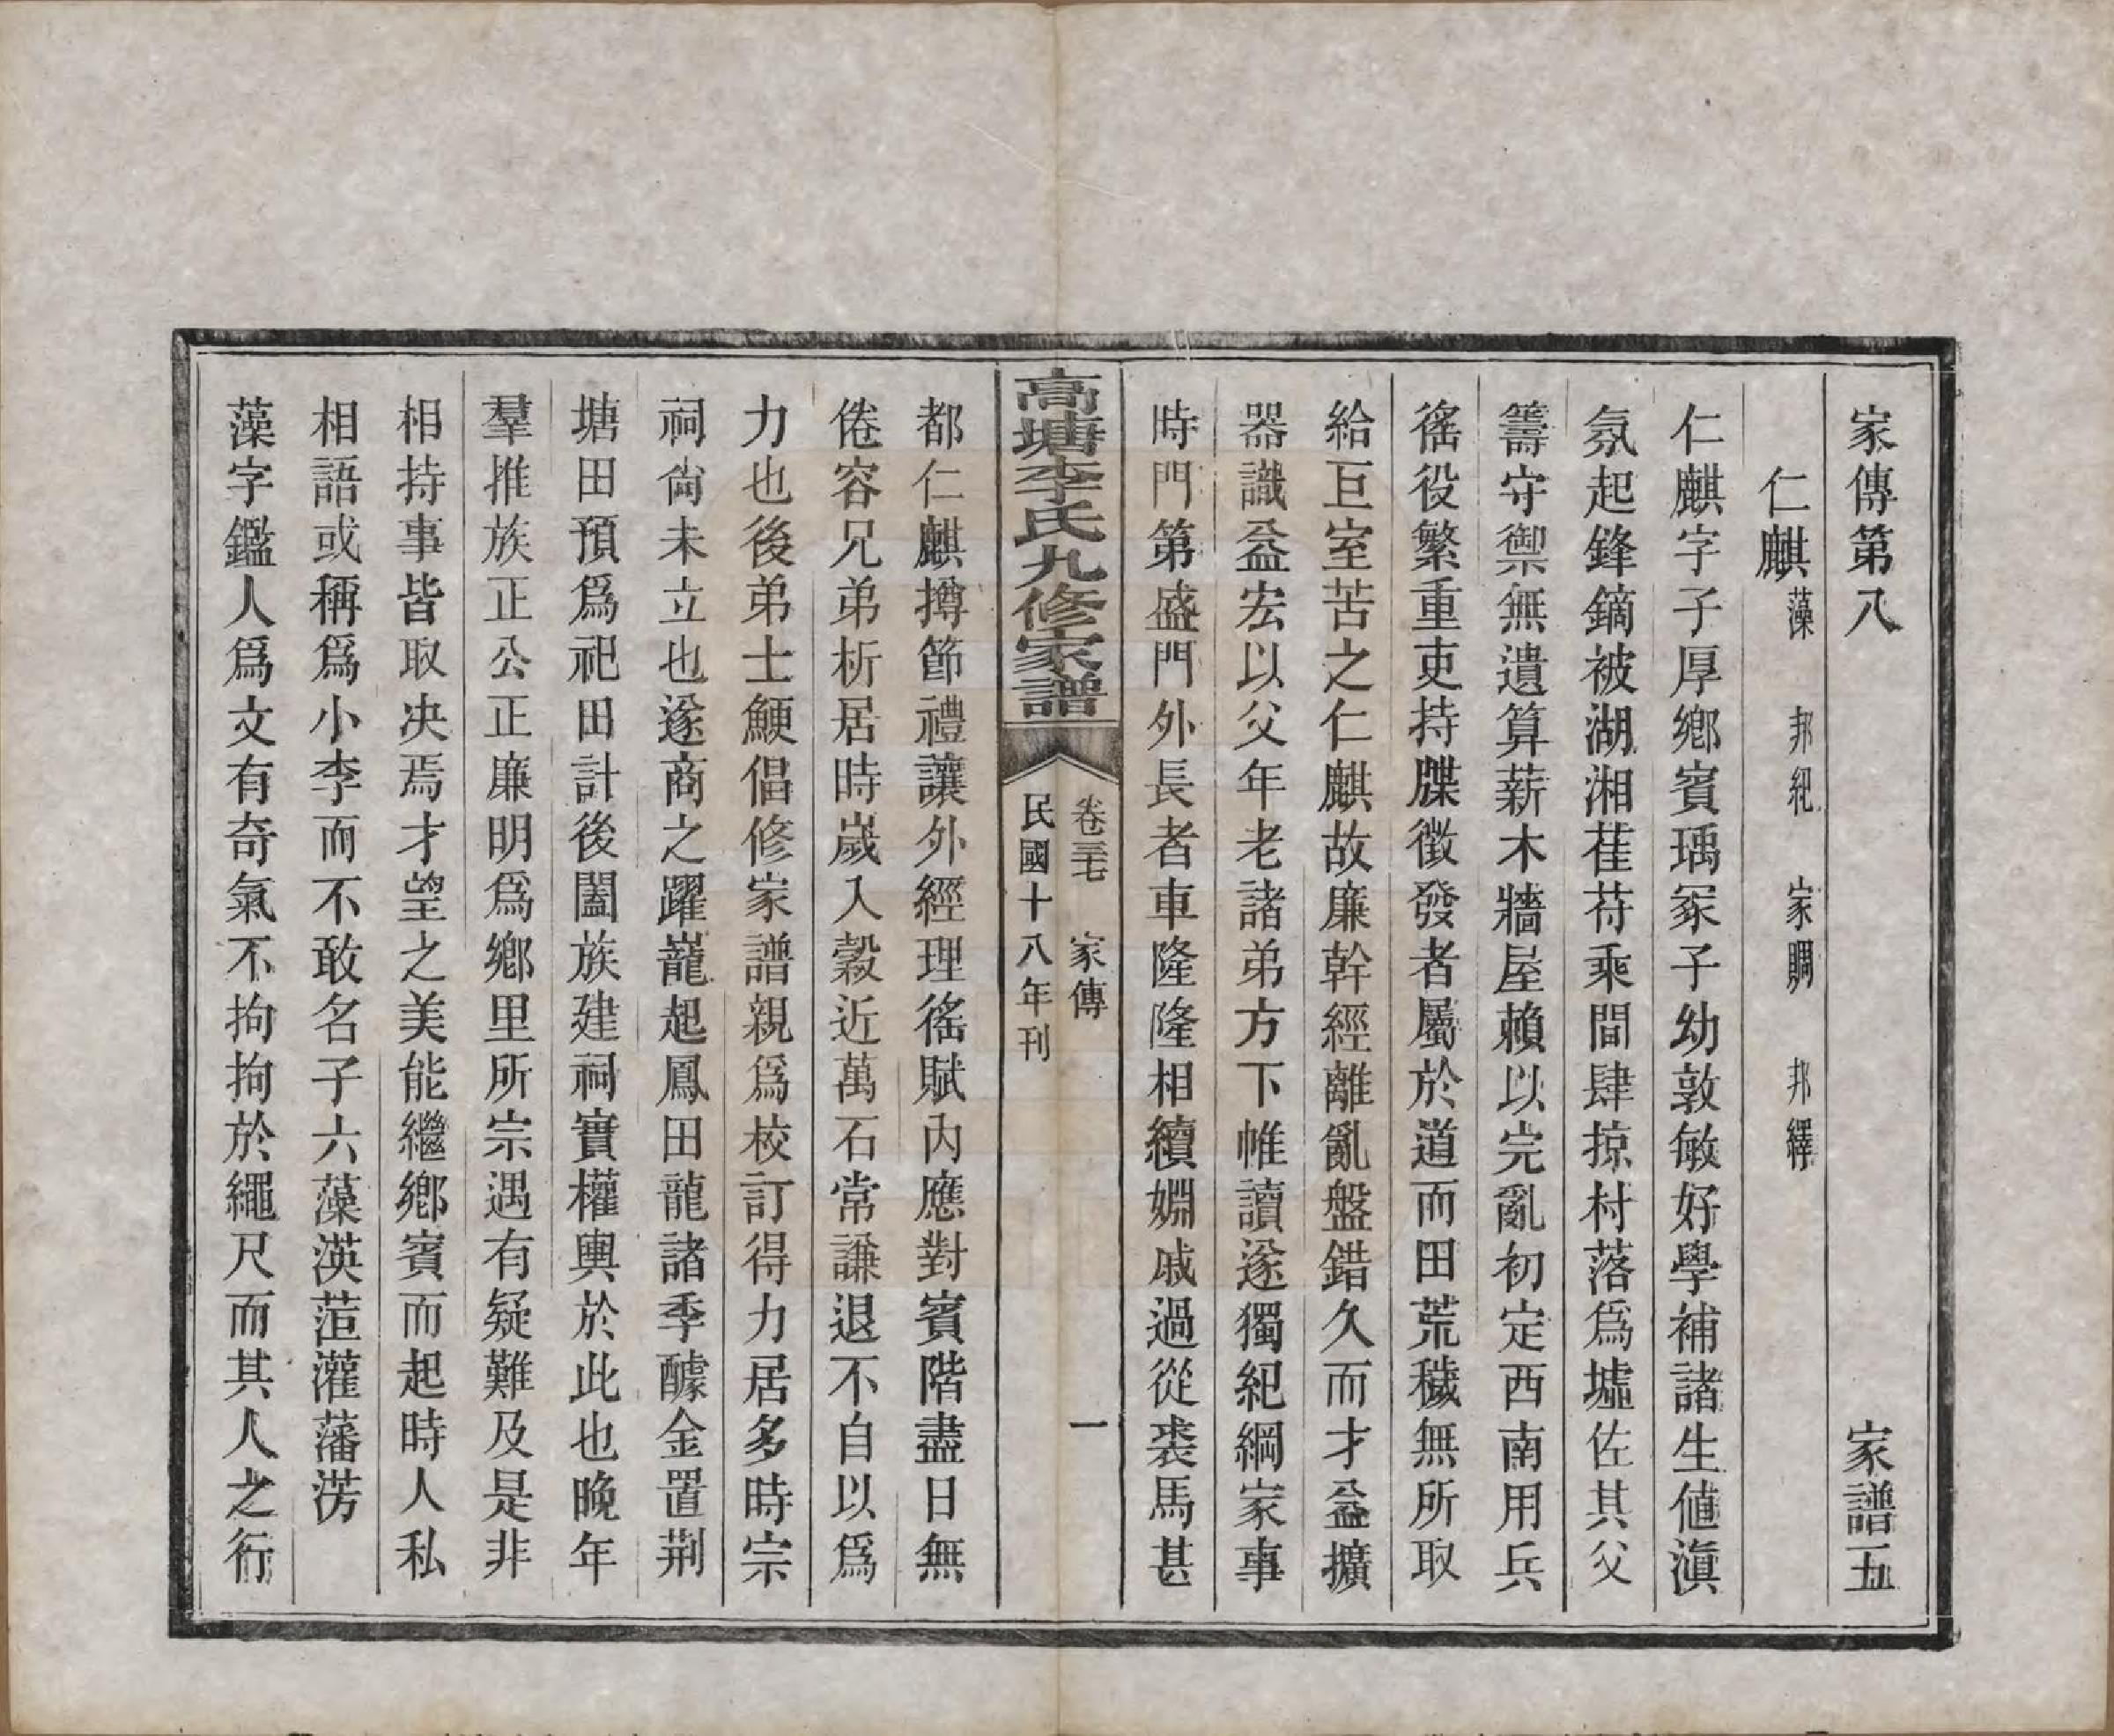 家傳第八　家譜五
仁麒　藻　邦紀　家賙　邦繹
仁麒字子厚鄉賓瑀冢子幼敦敏好學補諸生値滇
氛起鋒鏑被湖湘萑苻乘間肆掠村落爲墟佐其父
籌守禦無遺算薪木牆屋賴以完亂初定西南用兵
徭役繁重吏持牒徵發者屬於道而田荒穢無所取
給巨室苦之仁麒故廉幹經離亂盤錯久而才益擴
器識益宏以父年老諸弟方下帷讀遂獨紀綱家事
時門第盛門外長者車隆隆相續婣戚過從裘馬甚
高塘李氏九修家譜
卷三十七　家傳　一
民國十八年刊
都仁麒撙節禮讓外經理徭賦內應對賓階盡日無
倦容兄弟析居時歲入穀近萬石常謙退不自以爲
力也後弟士鯁倡修家譜親爲校訂得力居多時宗
祠尙未立也遂商之躍巃起鳳田龍諸季醵金置荆
塘田預爲祀田計後闔族建祠實權輿於此也晚年
羣推族正公正廉明爲鄉里所宗遇有疑難及是非
相持事皆取决焉才望之美能繼鄉賓而起時人私
相語或稱爲小李而不敢名子六藻渶萣灌藩淓
藻字鑑人爲文有奇氣不拘拘於繩尺而其人之行